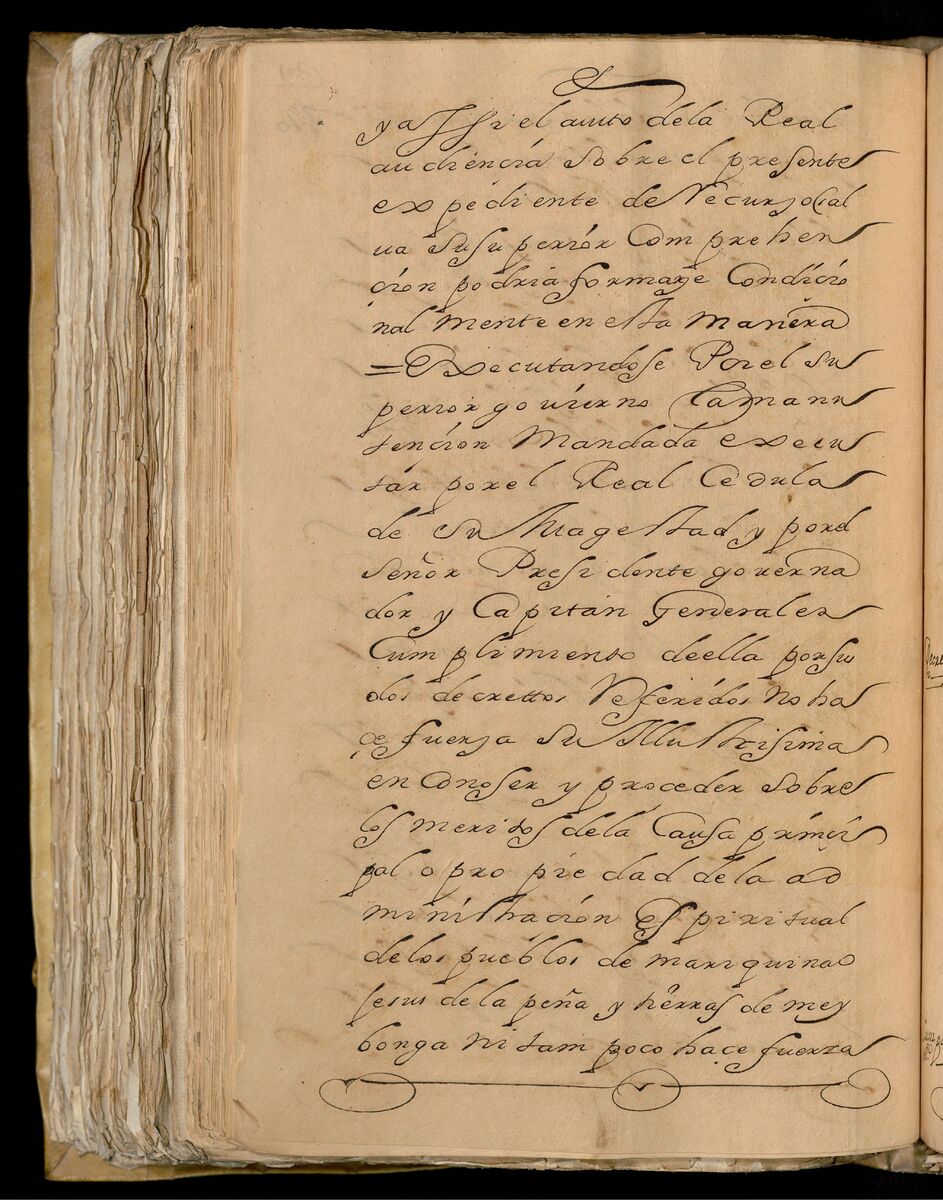 y assi el auto dela Real
audiencia sobre el presente
expediente de Recurso sal
va su superior Comprehen
çion podria formarse Condicio
nalmente en esta manera
= Executandose Por el su
perior govierno la manu
tencion Mandada execu
tar por el Real Cedula
de su Magestad y por el
señor Presidente governa
dor y Capitan General en
Cumplimiento de ella por sus
dos decrettos Referidos no ha
çe fuerza su Illustrisima
en Conoser y proceder sobre
los meritos dela Causa princi
pal o propiedad dela ad
ministracion Espiritual
delos pueblos de mariquina
Jesus de la peña y tierras de mey
bonga ni tampoco haçe fuerza